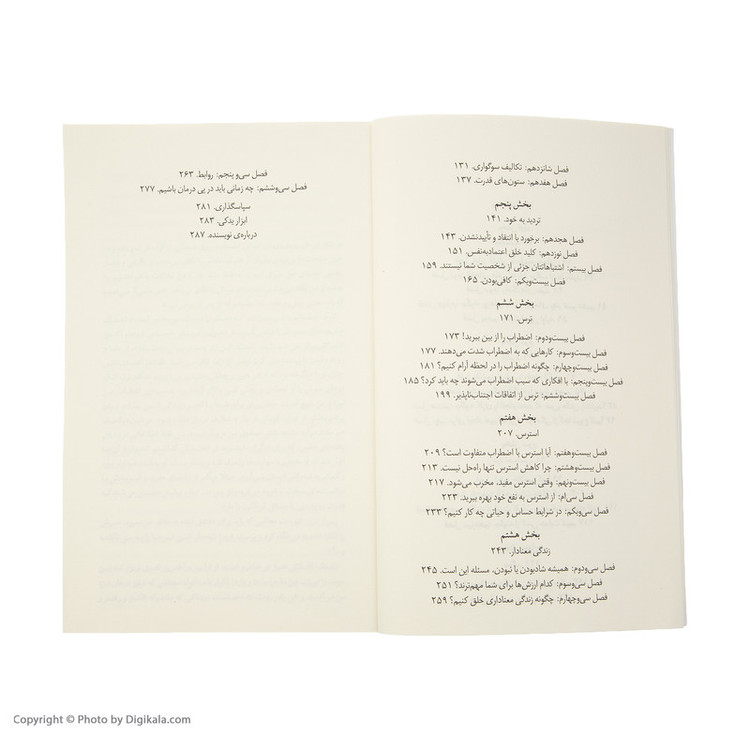 فصل شانزدهم: تکالیف سوگواری. ۱۳۱
فصل هفدهم: ستون‌های قدرت. ۱۳۷
بخش پنجم
تردید به خود. ۱۴۱
فصل هجدهم: برخورد با انتقاد و تأییدنشدن. ۱۴۳
فصل نوزدهم: کلید خلق اعتمادبه‌نفس. ۱۵۱
فصل بیستم: اشتباهاتتان جزئی از شخصیت شما نیستند. ۱۵۹
فصل بیست‌ویکم: کافی‌بودن. ۱۶۵
بخش ششم
ترس. ۱۷۱
فصل بیست‌ودوم: اضطراب را از بین ببرید! ۱۷۳
فصل بیست‌وسوم: کارهایی که به اضطراب شدت می‌دهند. ۱۷۷
فصل بیست‌وچهارم: چگونه اضطراب را در لحظه آرام کنیم؟ ۱۸۱
فصل بیست‌وپنجم: با افکاری که سبب اضطراب می‌شوند چه باید کرد؟ ۱۸۵
فصل بیست‌وششم: ترس از اتفاقات اجتناب‌ناپذیر. ۱۹۹
بخش هفتم
استرس. ۲۰۷
فصل بیست‌وهفتم: آیا استرس با اضطراب متفاوت است؟ ۲۰۹
فصل بیست‌وهشتم: چرا کاهش استرس تنها راه‌حل نیست. ۲۱۳
فصل بیست‌ونهم: وقتی استرس مفید، مخرب می‌شود. ۲۱۷
فصل سی‌ام: از استرس به نفع خود بهره ببرید. ۲۲۳
فصل سی‌ویکم: در شرایط حساس و حیاتی چه کار کنیم؟ ۲۳۳
بخش هشتم
زندگی معنادار. ۲۴۳
فصل سی‌ودوم: همیشه شادبودن یا نبودن، مسئله این است. ۲۴۵
فصل سی‌وسوم: کدام ارزش‌ها برای شما مهم‌ترند؟ ۲۵۱
فصل سی‌وچهارم: چگونه زندگی معناداری خلق کنیم؟ ۲۵۹
فصل سی‌وپنجم: روابط. ۲۶۳
فصل سی‌وششم: چه زمانی باید در پی درمان باشیم. ۲۷۷
سپاسگذاری. ۲۸۱
ابزار یدکی. ۲۸۳
درباره‌ی نویسنده. ۲۸۷
Copyright © Photo by Digikala.com